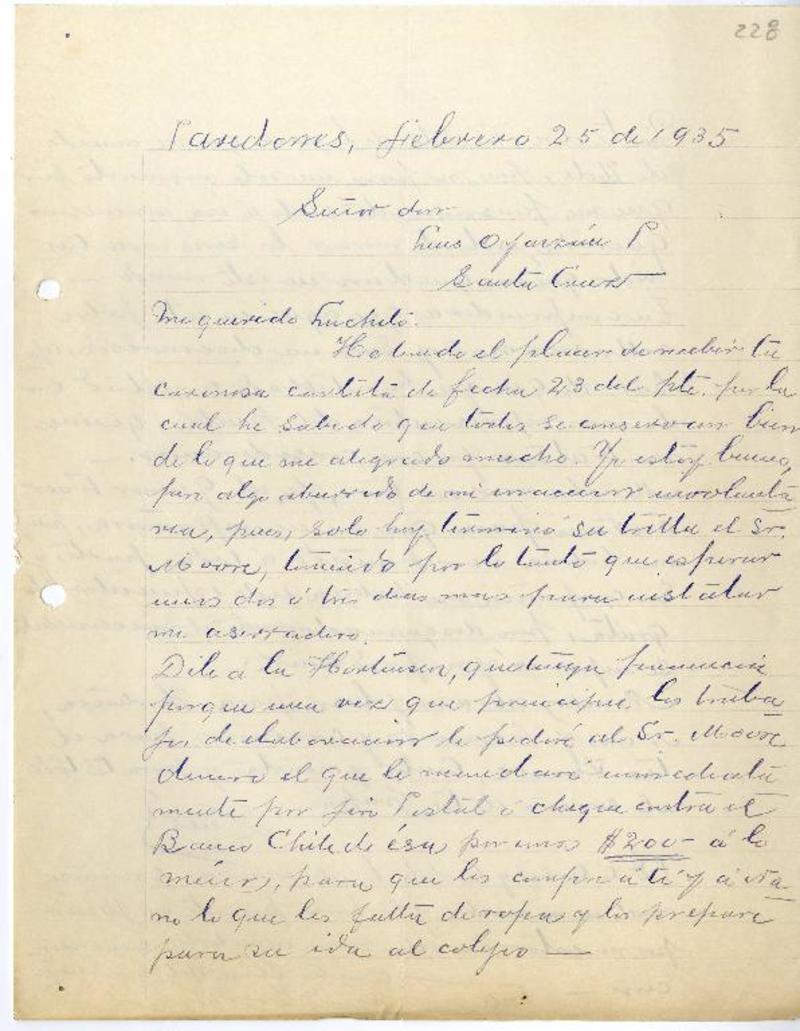 228
Paredones, Febrero 25 de 1935
Señor don
Luis Oyarzún P
Santa Cruz
Mi querido Luchito.
He tenido el placer de recibir tu
cariñosa cartita de fecha 23 del pte. por la
cual he sabido que todos se conservan bien
de lo que me alegrado mucho. Yo estoy bueno,
pero algo aburrido de mi inacción involunta
ria, pues, solo hoy terminó su trilla el Sr.
Moore, teniendo por lo tanto que esperar
unos dos ó tres dias mas para instalar
mi aserradero.
Dile a la Hortensia, que tenga paciencia
porque una vez que principie los traba
jos de elaboración le pediré al Sr. Moore
dinero el que le mandaré inmediata
mente por jiro Postal ó cheque contra el
Banco Chile de ésa por unos $200- á lo
menos, para que les compre á tí y á
no lo que les falta de ropa y los prepare
para su ida al colejio —